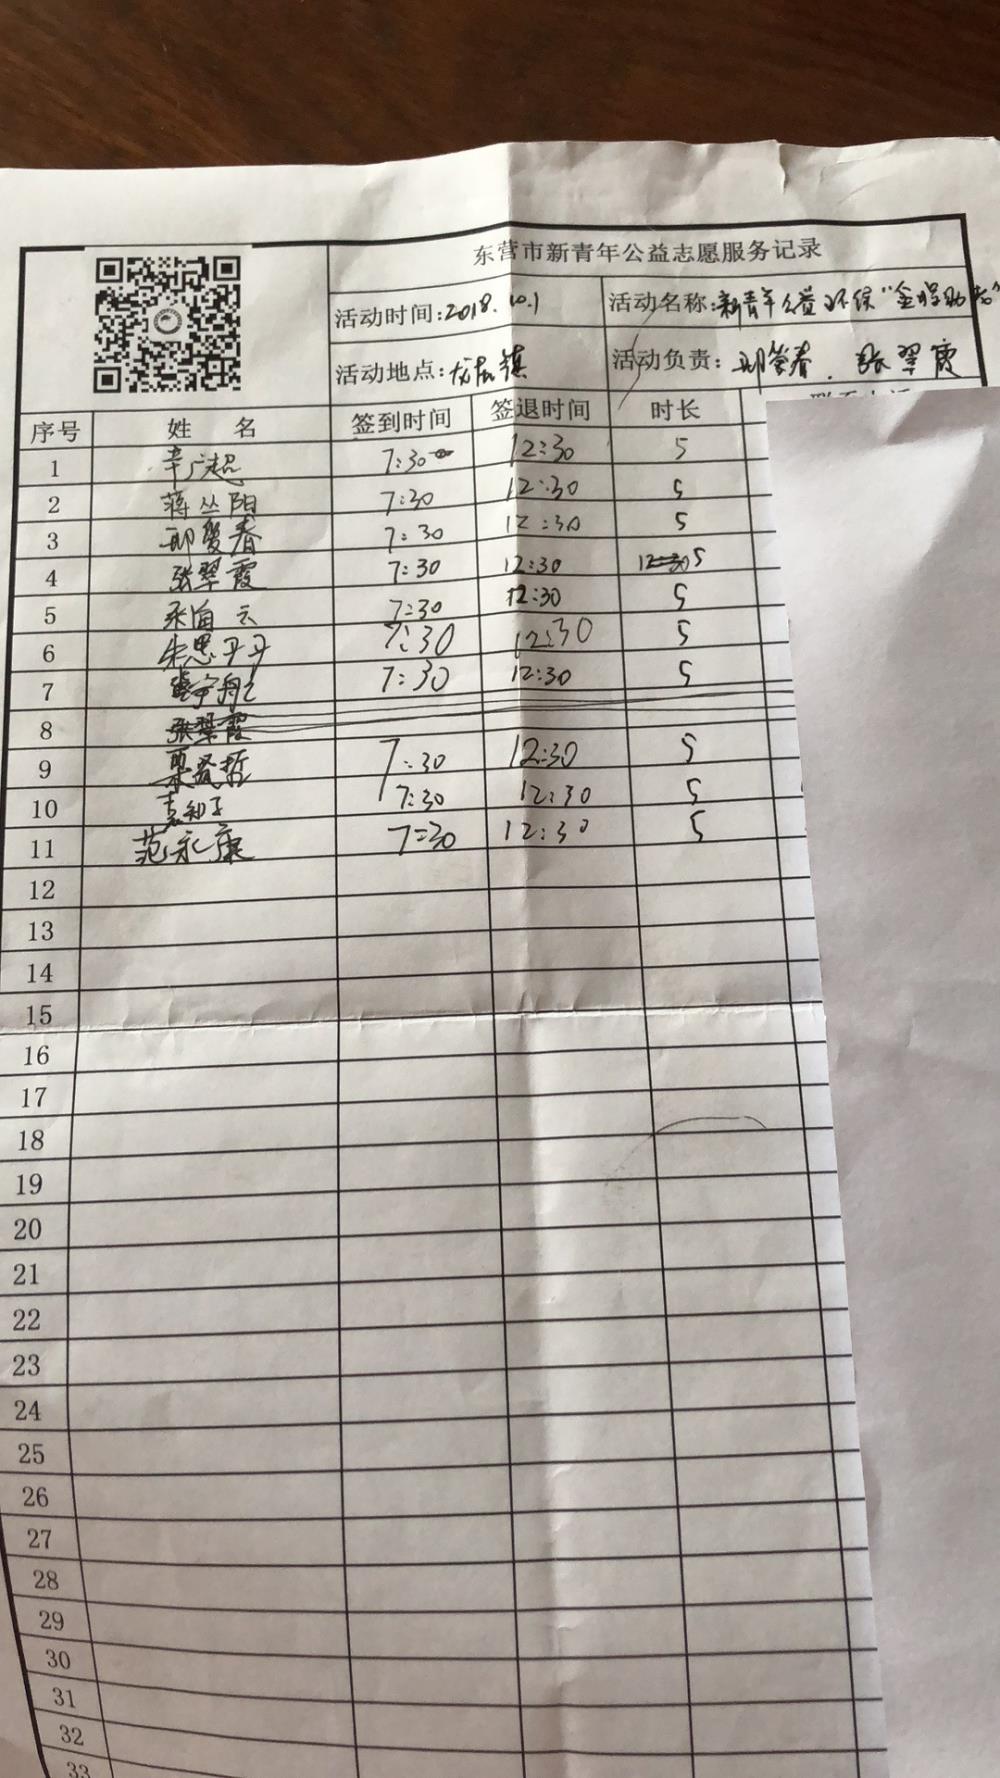 东营市新青年公益志愿服务记录
活动时间:2018.10.1 活动名称:新青年公益环保"金晖助老"
活动地点:龙居镇 活动负责: 张翠霞
序号 姓 名 签到时间 签退时间 时长
1 辛广超 7:30 12:30 5
2 蒋丛阳 7:30 12:30 5
3 7:30 12:30 5
4 张翠霞 7:30 12:30 12:30 5
5 7:30 12:30 5
6 朱思丹 7:30 12:30 5
7 7:30 12:30 5
8 张翠霞
9 7:30 12:30 5
10 袁知子 7:30 12:30 5
11 范永康 7:30 12:30 5
12
13
14
15
16
17
18
19
20
21
22
23
24
25
26
27
28
29
30
31
32
33